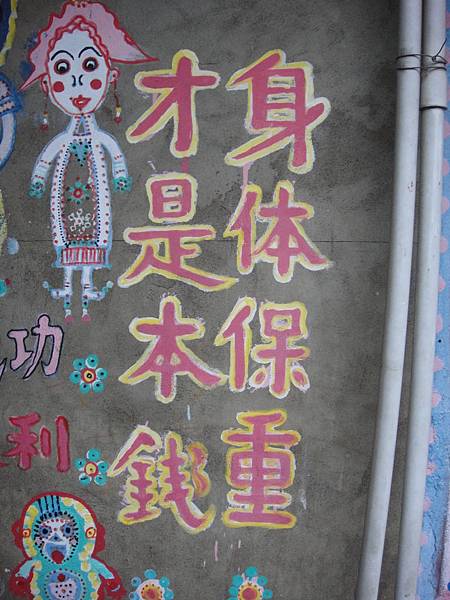 身体保重
才是本銭
功
利